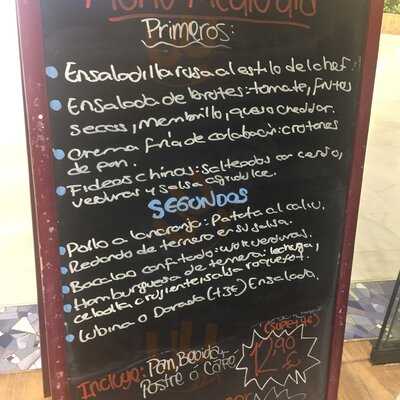 Menú Mediodía
Primeros:
Ensaladilla rusa al estilo del chef.
Ensalada de brotes: tomate, frutos
secos, membrillo, queso cheddar.
Crema fría de calabacín: crotones
de pan.
Fideos chinos: Salteados con cerdo,
verduras y salsa agridulce.
SEGUNDOS
Pollo a la naranja: Patata al caliu.
Redondo de ternera en su salsa.
Bacalao confitado: wok verduras.
Hamburguesa de ternera: lechuga,
cebolla crujiente, salsa roquefort.
Lubina o Dorada (+3€) Ensalada.
12,90
€
Incluye: Pan, Bebida,
Postre ó Café